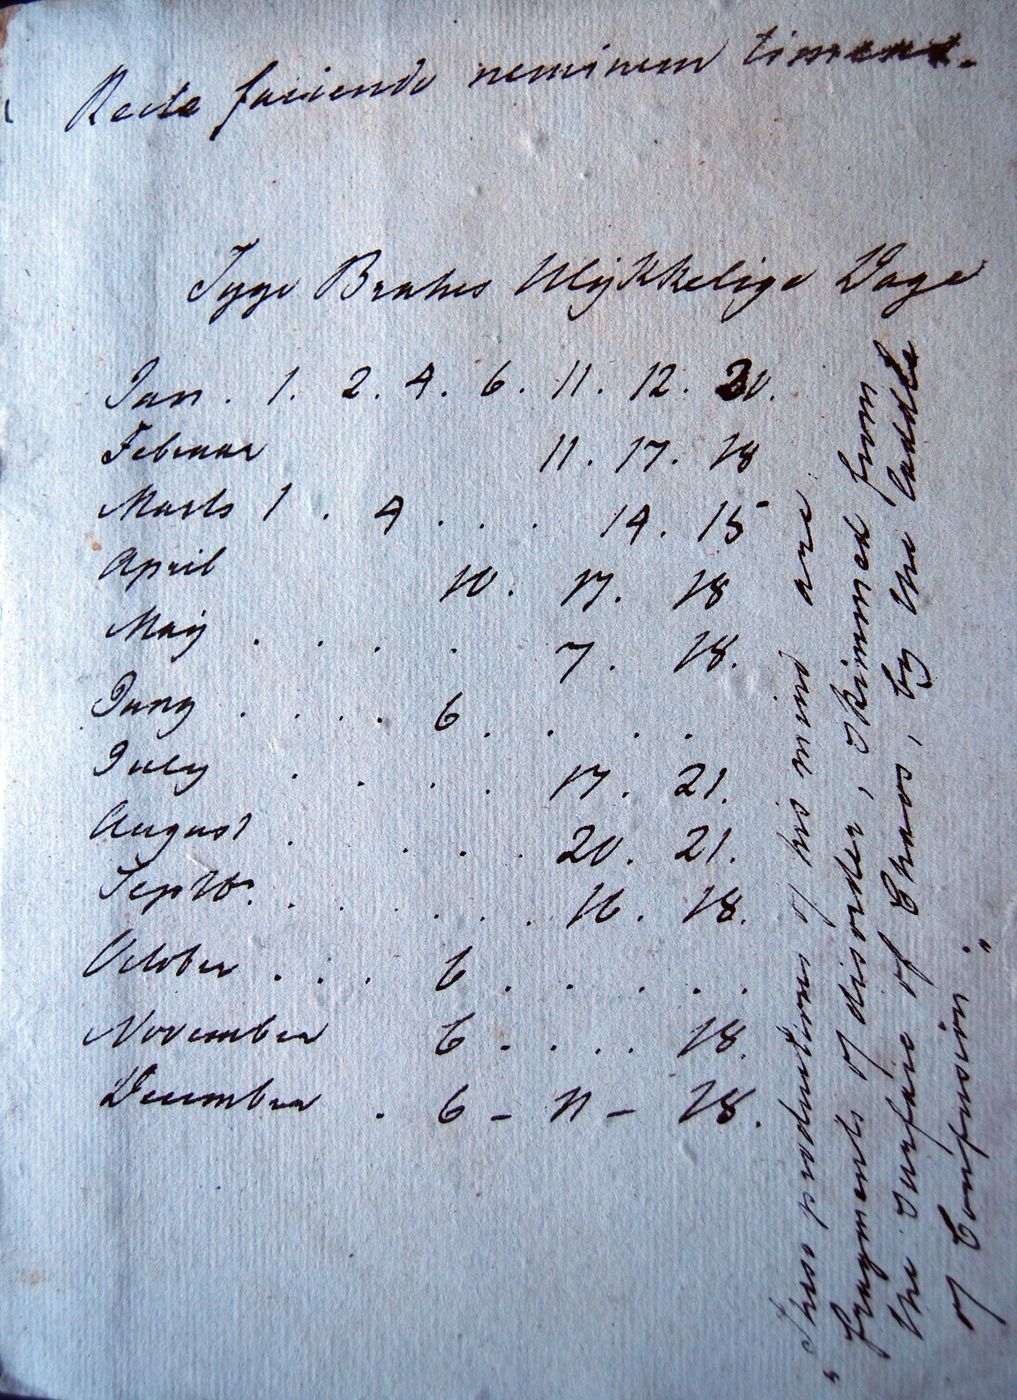 Recte faciendo neminem timeas.
Tyge Brahes Ulykkelige Dage
Jan. 1. 2. 4. 6. 11. 12. 20.
Februar 11. 17. 18
Marts 1 . 4 . . . 14. 15
April 10. 17. 18
Maÿ . . . . 7. 18.
Juny . . . . 6 . . . .
July . . . . 17. 21.
August . . . . 20. 21.
Septbr. . . . . . 16. 18.
October . . . 6 . . . . .
November 6 . . . . 18.
December . 6 – 11 – 18.
„ Thes productions of his mind are
fragments of disorder, skimmed from
the surface of Chaos, by the laddle
of Confusion "